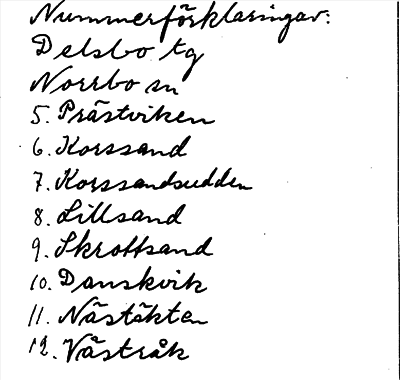 Nummerförklaringar:
Delsbo tg
Norrbo sn
5. Prästviken
6. Korssand
7. Korssandsudden
8. Lillsand
9. Skrottsand
10. Danskvik
11. Nästäkten
12. Våstråk